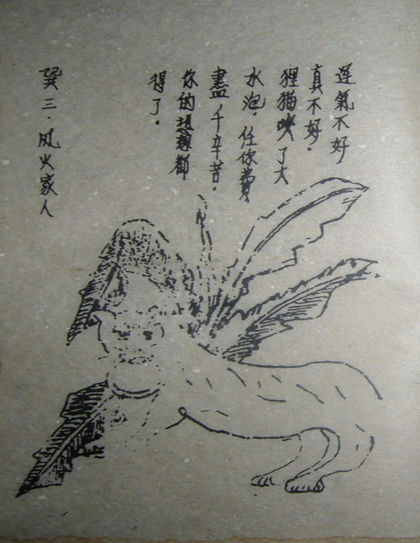 運氣不好
真不好。
狸猫咬了大
水泡。任你費
盡千辛苦。
你的想都
得了。
巽三。風火家人